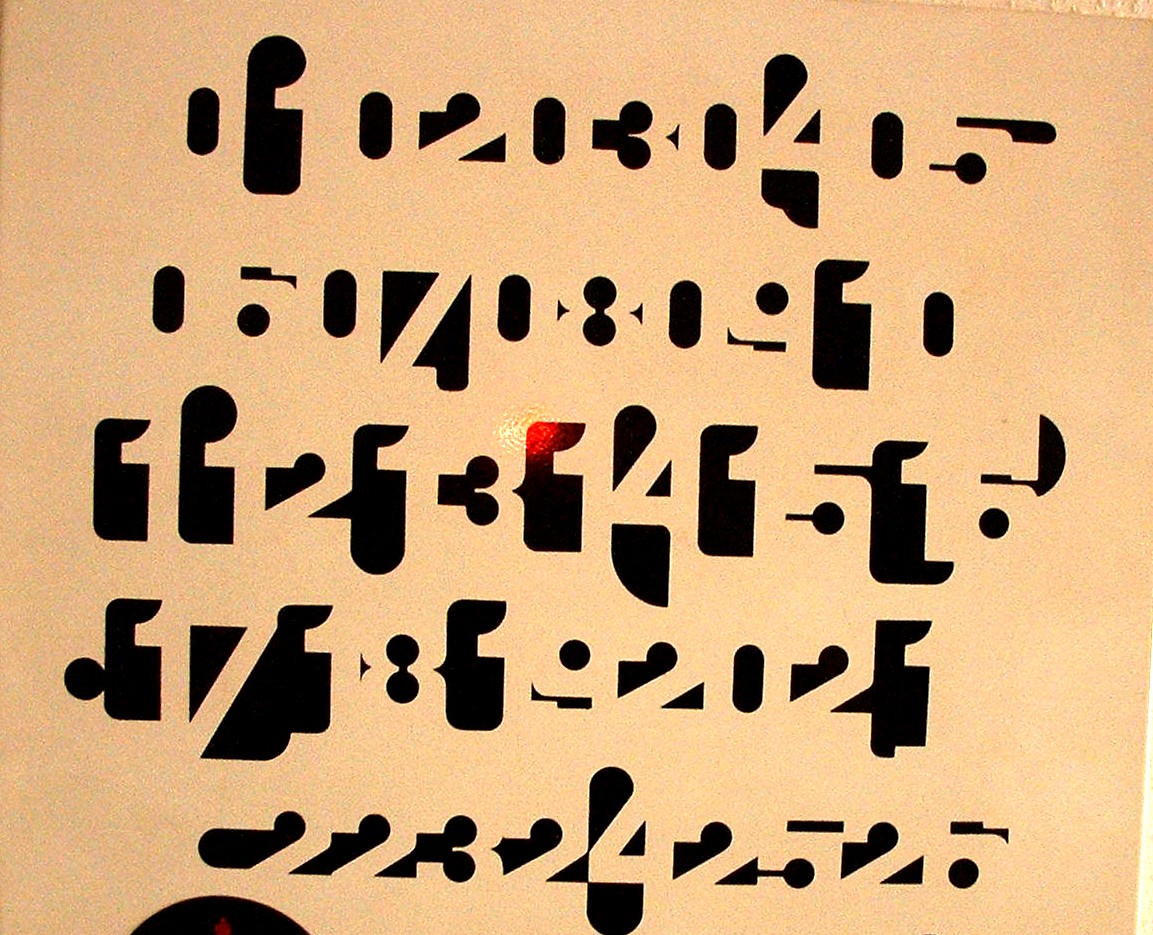 0102030405
0607080910
111213141516
1718192021
2223242526